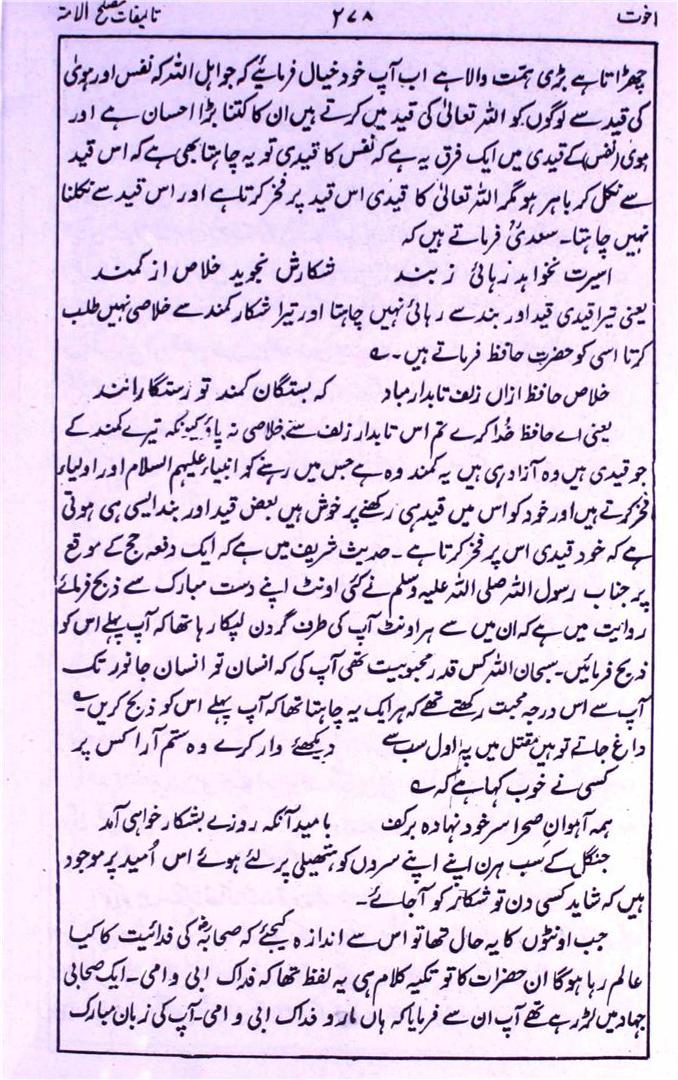 اخوت ۲۷۸ تالیفات مصلح الامۃ
چھڑاتا ہے بڑی ہمت والا ہے اب آپ خود خیال فرمائیے کہ جو اہل اللہ کہ نفس اور ہویٰ
کی قید سے لوگوں کو اللہ تعالیٰ کی قید میں کرتے ہیں ان کا کتنا بڑا احسان ہے اور
ہویٰ (نفس) کے قیدی میں ایک فرق یہ ہے کہ نفس کا قیدی تو یہ چاہتا بھی ہے کہ اس قید
سے نکل کر باہر ہو مگر اللہ تعالیٰ کا قیدی اس قید پر فخر کرتا ہے اور اس قید سے نکلنا
نہیں چاہتا۔ سعدیؒ فرماتے ہیں کہ
اسیرت نخواہد رہائی ز بند شکارش نجوید خلاص از کمند
یعنی تیرا قیدی قید اور بند سے رہائی نہیں چاہتا اور تیرا شکار کمند سے خلاصی نہیں طلب
کرتا اسی کو حضرت حافظ فرماتے ہیں۔ ؎
خلاص حافظ ازاں زلف تابدار مباد کہ بستگان کمند تو رستگارانند
یعنی اے حافظ خدا کرے تم اس تابدار زلف سے خلاصی نہ پاؤ کیونکہ تیرے کمند کے
جو قیدی ہیں وہ آزاد ہی ہیں یہ کمند وہ ہے جس میں رہنے کو انبیاء علیہم السلام اور اولیاء
فخر کرتے ہیں اور خود کو اس میں قید ہی رکھنے پر خوش ہیں بعض قید اور بند ایسی ہی ہوتی
ہے کہ خود قیدی اس پر فخر کرتا ہے۔ حدیث شریف میں ہے کہ ایک دفعہ حج کے موقع
پر جناب رسول اللہ صلی اللہ علیہ وسلم نے کئی اونٹ اپنے دست مبارک سے ذبح فرمائے
روایت میں ہے کہ ان میں سے ہر اونٹ آپ کی طرف گردن لپکا رہا تھا کہ آپ پہلے اس کو
ذبح فرمائیں۔ سبحان اللہ کس قدر محبوبیت تھی آپ کی کہ انسان تو انسان جانور تک
آپ سے اس درجہ محبت رکھتے تھے کہ ہر ایک یہ چاہتا تھا کہ آپ پہلے اس کو ذبح کریں۔ ؎
داغ جاتے تو ہیں مقتل میں پہ اول سب سے دیکھئے وار کرے وہ ستم آرا کس پر
کسی نے خوب کہا ہے کہ ؎
ہمہ آہوانِ صحرا سر خود نہادہ برکف بامید آنکہ روزے بشکار خواہی آمد
جنگل کے سب ہرن اپنے اپنے سروں کو ہتھیلی پر لئے ہوئے اس اُمید پر موجود
ہیں کہ شاید کسی دن تو شکار کو آجائے۔
جب اونٹوں کا یہ حال تھا تو اس سے اندازہ کیجئے کہ صحابہؓ کی فدائیت کا کیا
عالم رہا ہوگا ان حضرات کا تو تکیہ کلام ہی یہ لفظ تھا کہ فداک ابی وامی۔ ایک صحابی
جہاد میں لڑ رہے تھے آپ ان سے فرمایا کہ ہاں مارو فداک ابی وامی۔ آپ کی زبان مبارک